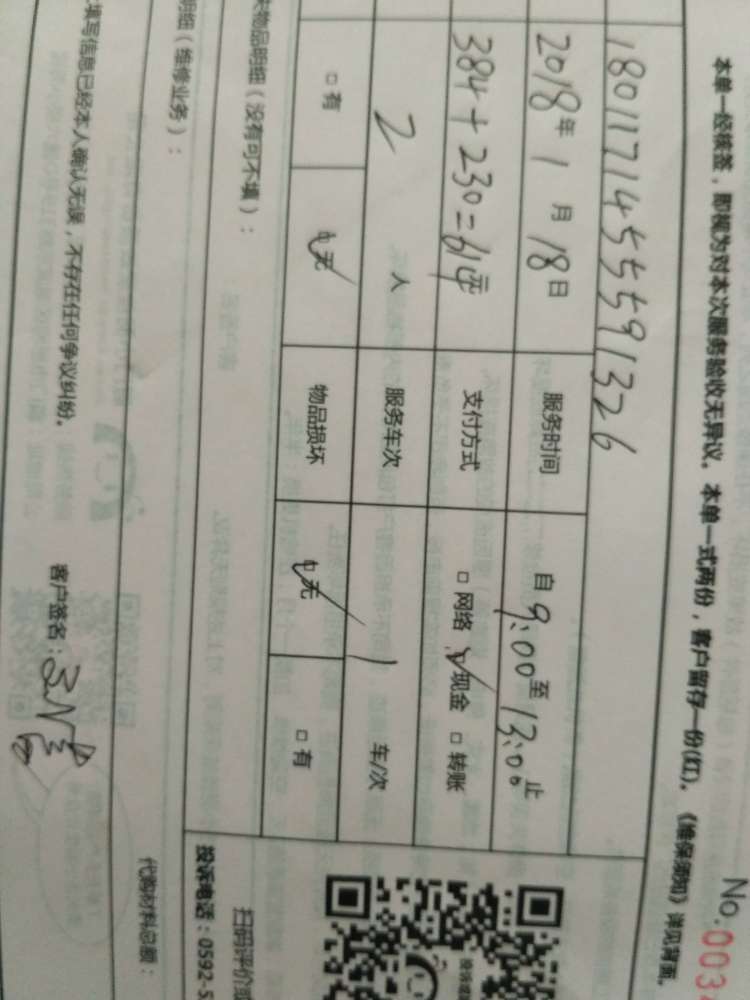 No.003
本单一经接签，即视为对本次服务验收无异议。本单一式两份，客户留存一份(红)。《维保须知》详见背面。
18011714555591326
2018年1月18日 服务时间 自9:00至13:00止
384+230=614元 支付方式 □网络 ☑现金 □转账
2人 服务车次 1 车/次
□有 ☑无 物品损坏 ☑无 □有
物品明细（没有可不填）：
扫码评价或
明细（维修业务）：
投诉电话：0592-5
代购材料总额：
填写信息已经本人确认无误，不存在任何争议纠纷。 客户签名：